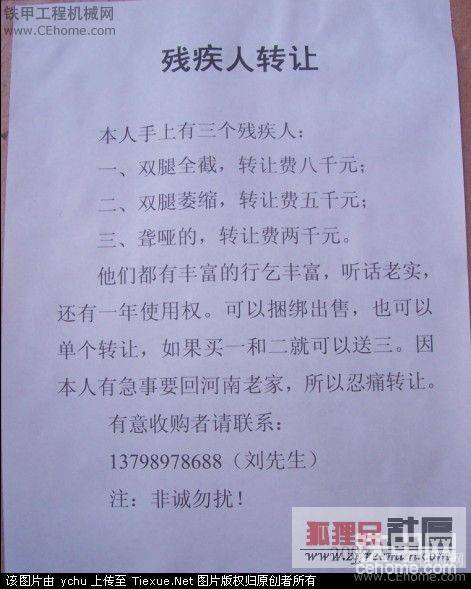 铁甲工程机械网
www.CEhome.com
残疾人转让
本人手上有三个残疾人：
一、双腿全截，转让费八千元；
二、双腿萎缩，转让费五千元；
三、聋哑的，转让费两千元。
他们都有丰富的行乞丰富，听话老实，
还有一年使用权。可以捆绑出售，也可以
单个转让，如果买一和二就可以送三。因
本人有急事要回河南老家，所以忍痛转让。
有意收购者请联系：
13798978688（刘先生）
注：非诚勿扰！
社区
www.CEhome.com
该图片由 ychu 上传至 Tiexue.Net 图片版权归原创者所有